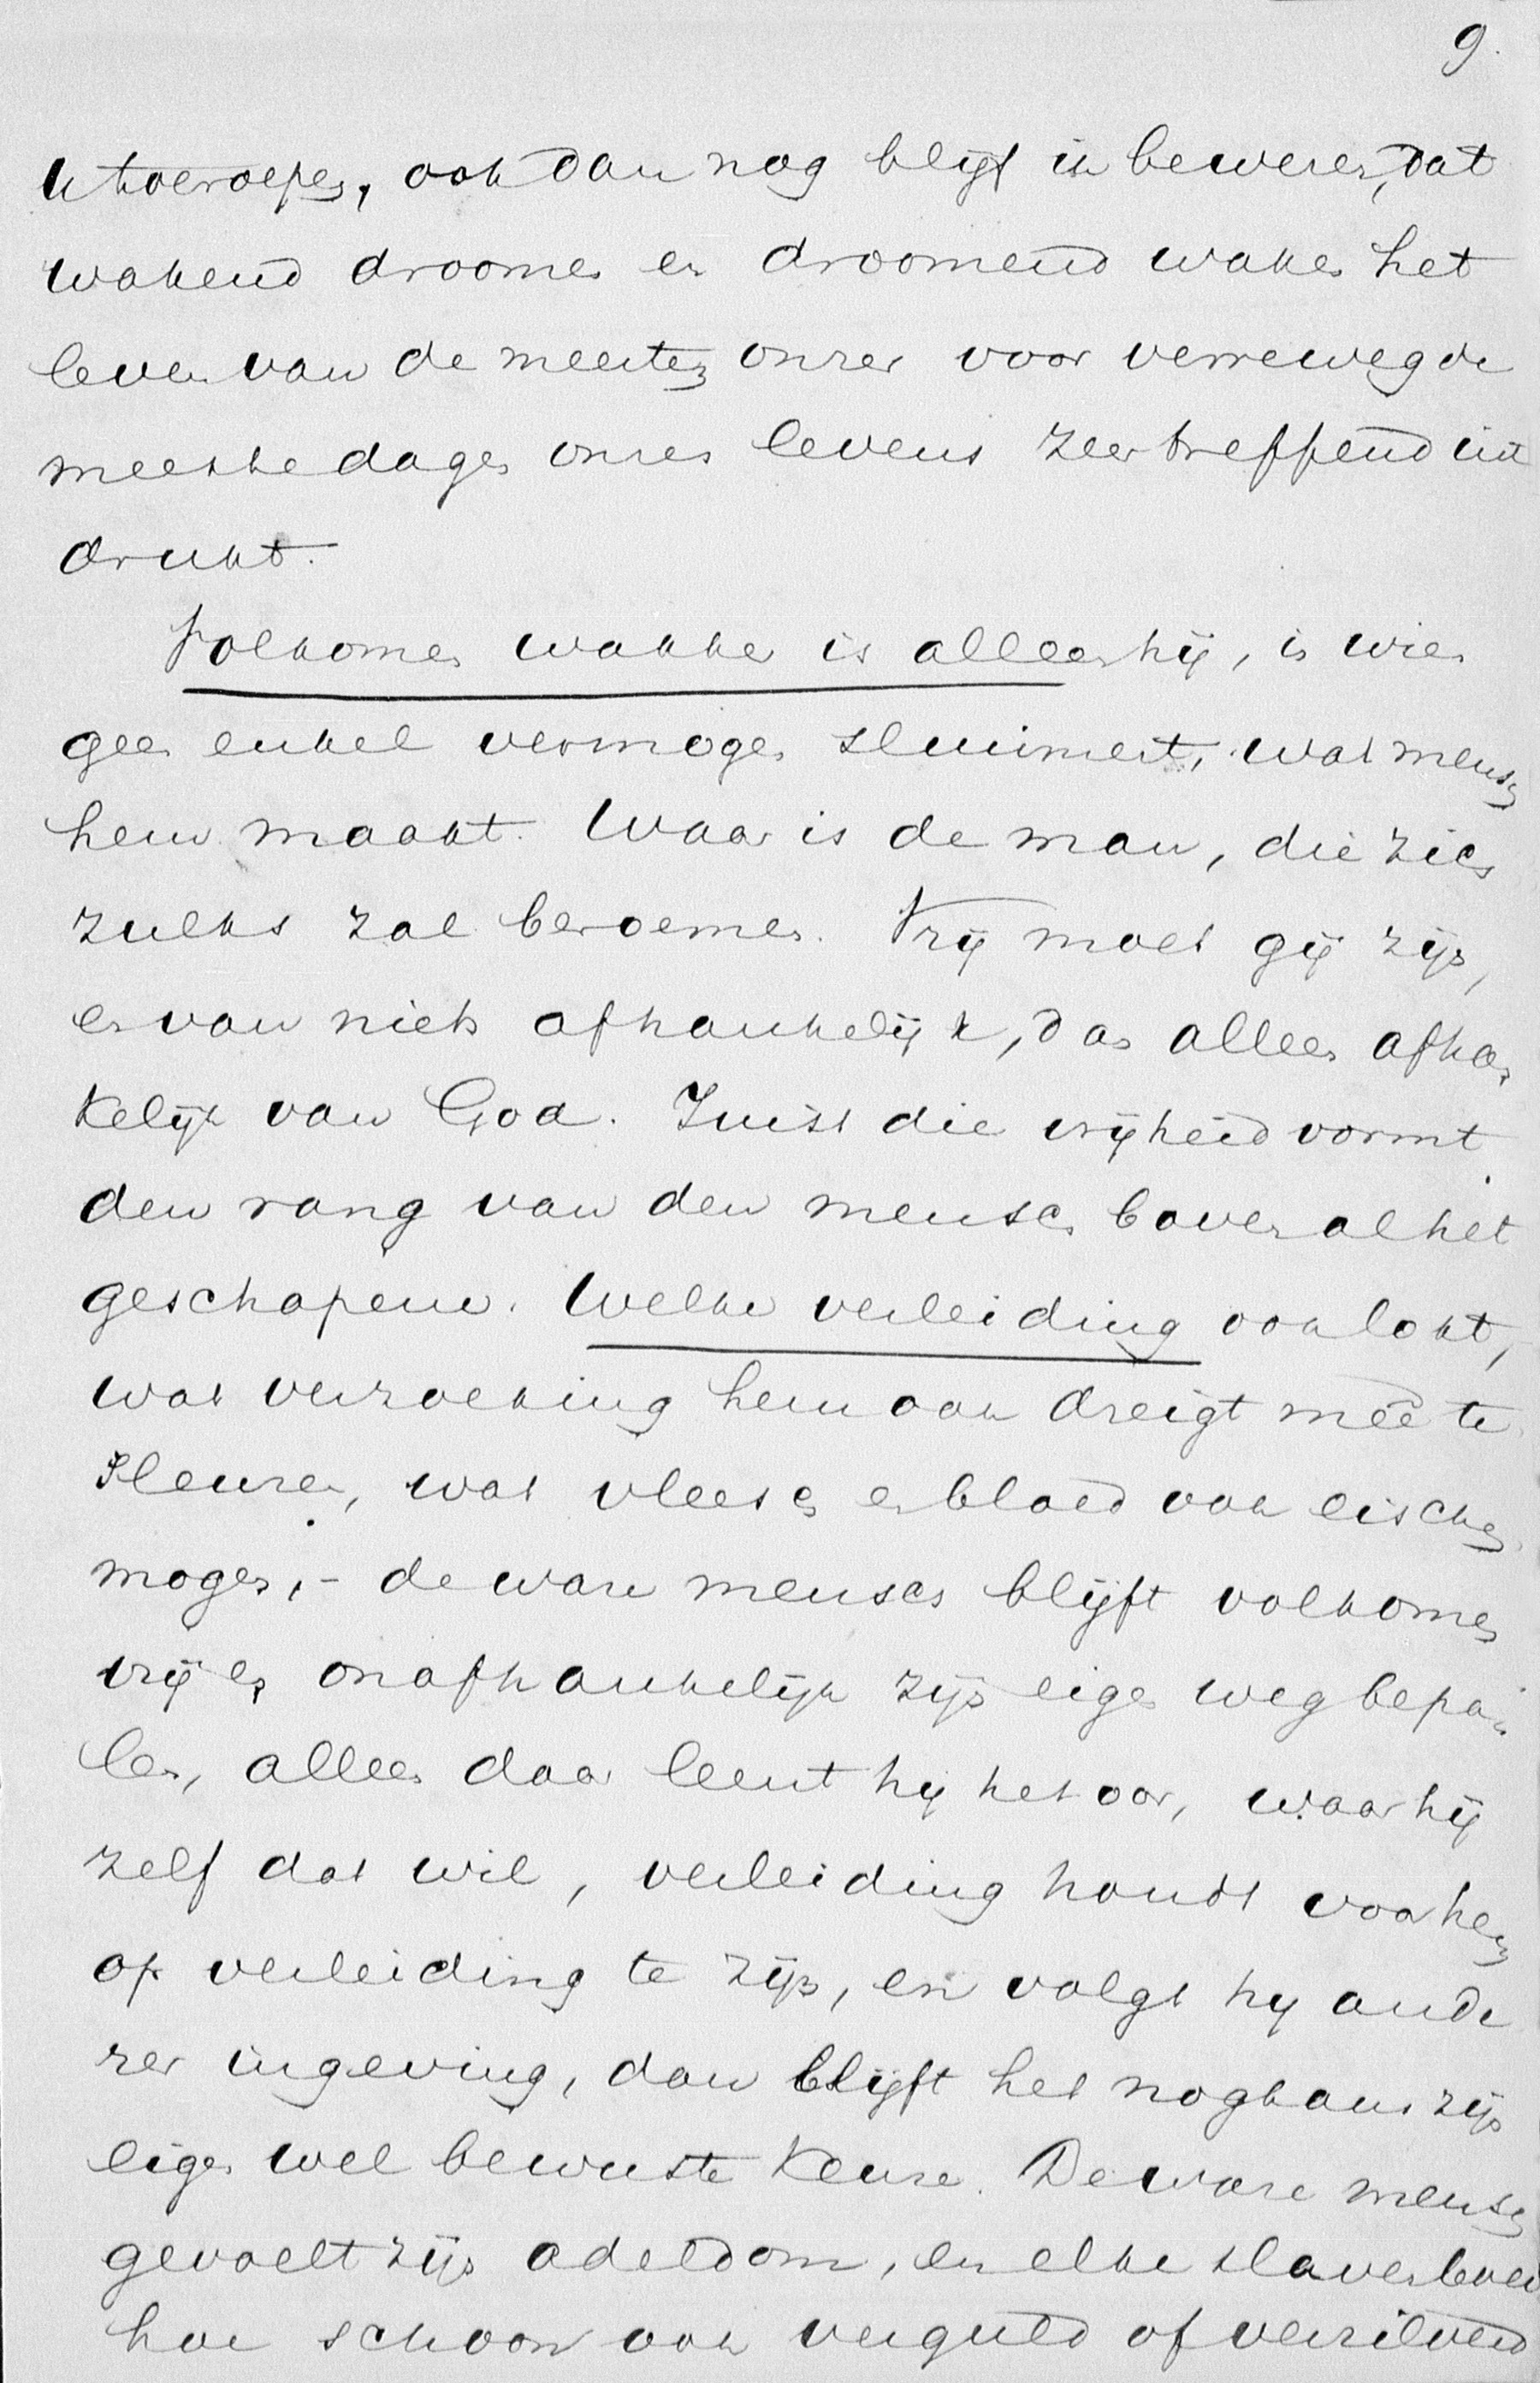 9.
u toeroepen, ook dan nog blijf ik beweren, dat
wakend droomen en droomend waken het
leven van de meesten onzer voor verreweg de
meeste dagen onzes levens zeer treffend uit
drukt.
Volkomen wakker is alleen hij, in wien
geen enkel vermogen sluimert, wat mensch
hem maakt. Waar is de man, die zich
zulks zal beroemen. Vrij moet gij zijn,
en van niets afhankelijk, dan alleen afhan
kelijk van God. Juist die vrijheid vormt
den rang van den mensch boven al het
geschapene. Welke verleiding ook lokt,
wat verzoeking hem ook dreigt meê te
sleuren, wat vleesch en bloed ook eischen
mogen, - de ware mensch blijft volkomen
vrij en onafhankelijk zijn eigen weg bepa-
len, alleen daar leent hij het oor, waar hij
zelf dat wil, verleiding houdt voor hem
op verleiding te zijn, en volgt hij ande
rer ingeving, dan blijft het nogtans zijn
eigen wel bewuste keuze. De ware mensch
gevoelt zijn adeldom, en elke slavenboei
hoe schoon ook verguld of verzilverd